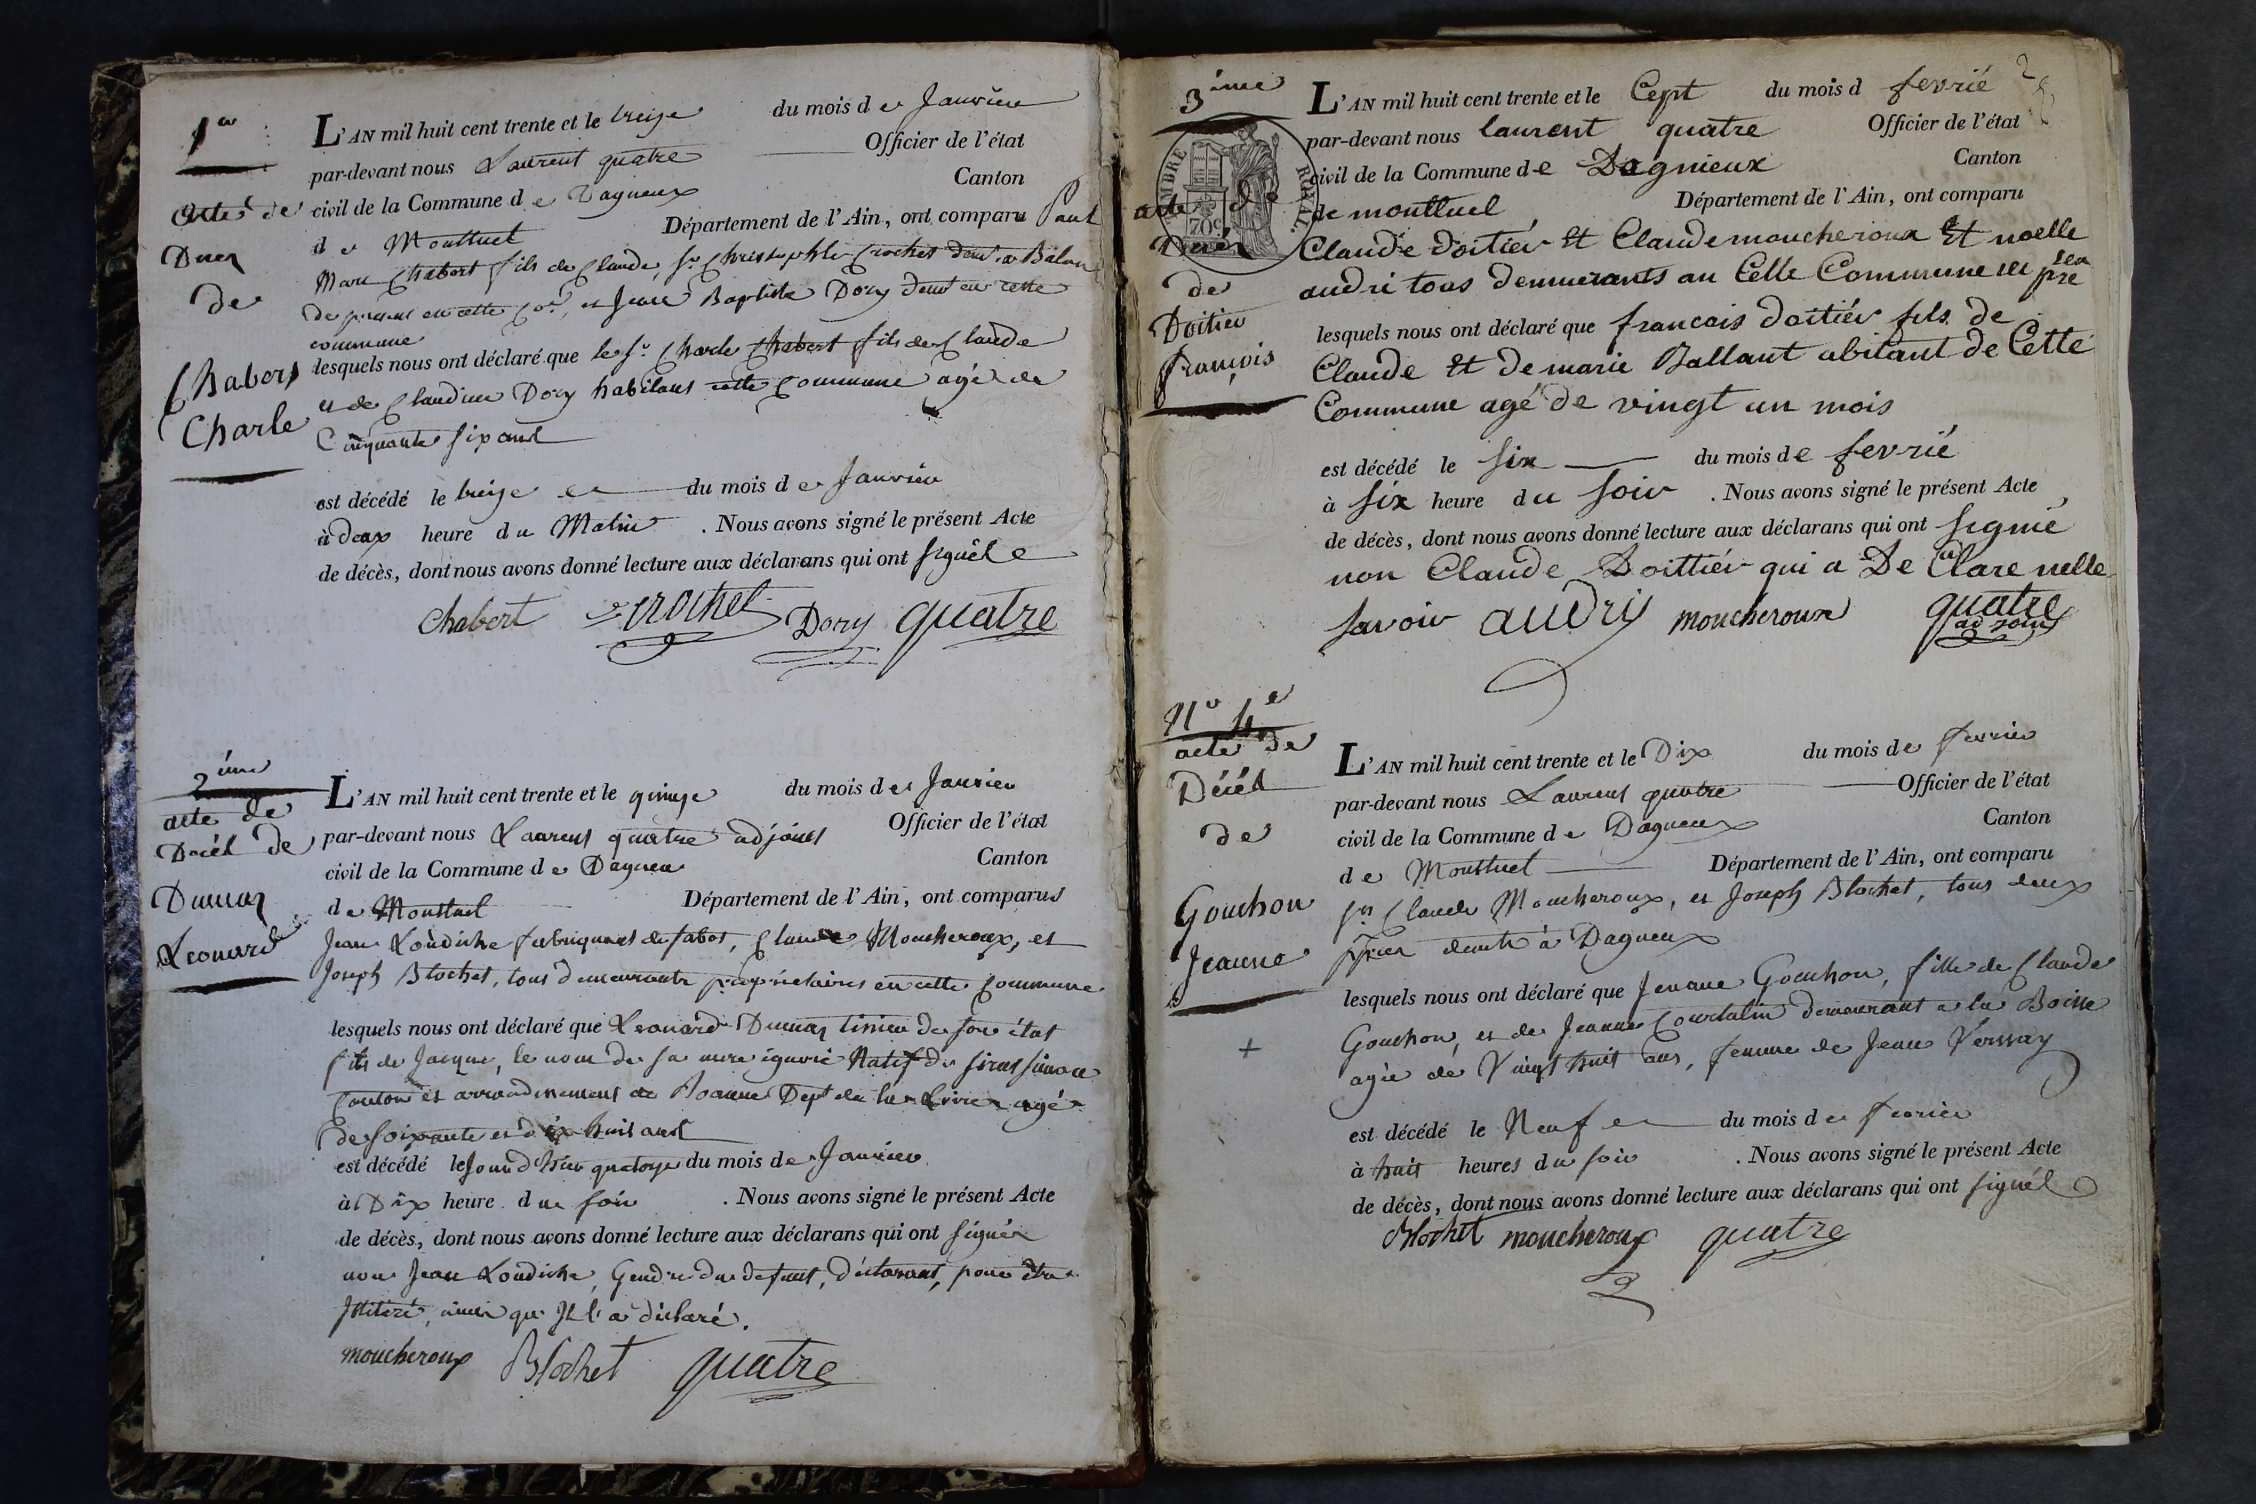 1er
Acte de
Décès
de
Chabert
Charle
L'AN mil huit cent trente et le treize du mois de Janvier
par-devant nous Laurent quatre Officier de l'état
civil de la Commune de Dagneux Canton
de Montluel Département de l'Ain, ont comparu Paul
Marc Chabert fils de Claude, Sr Christophle Crochet demt a Balan
de présent en cette Co.ne, et Jean Baptiste Dory demt en cette
commune
lesquels nous ont déclaré que le Sr Charle Chabert fils de Claude
et de Claudine Dory habitant cette Commune agé de
Cinquante six ans
est décédé le treize du mois de Janvier
à deux heure du Matin . Nous avons signé le présent Acte
de décès, dont nous avons donné lecture aux déclarans qui ont signé
Chabert Crochet Dory quatre
2ème
acte de
Décét de
Dumas
Leonard
L'AN mil huit cent trente et le quinze du mois de Janvier
par-devant nous Laurent quatre adjoint Officier de l'état
civil de la Commune de Dagneu Canton
de Montluel Département de l'Ain, ont comparus
Jean Loudiche fabriquant de sabot, Claude Moucheroux, et
Joseph Blochet, tous demeurants propriétaires en cette Commune
lesquels nous ont déclaré que Leonard Dumas tinieu de son état
fils de Jacque, le nom de sa mere ignoré Natif de
Canton et arrondissement de Roanne Dept de la Loire agé
de soixante et dix huit ans
est décédé le jour d'hier quatorze du mois de Janvier
à Dix heure du soir . Nous avons signé le présent Acte
de décès, dont nous avons donné lecture aux déclarans qui ont signér
non Jean Loudiche, Gendre du defunt, déclarant, pour être
Jlitéré, ainsi qu'Jl l'a déclaré.
moucheroux Blochet quatre
2
3ème
acte de
Décés
de
Doitier
François
TIMBRE ROYAL
70c
L'AN mil huit cent trente et le Cept du mois d fevrié
par-devant nous laurent quatre Officier de l'état
civil de la Commune de Dagnieux Canton
de montluel Département de l'Ain, ont comparu
Claude doitiér Et Claude moucheroux Et noelle
audri tous demurants an Celle Commune
lesquels nous ont déclaré que francais doitiér fils de
Claude Et de marie Ballant abitant de Cette
Commune agé de vingt un mois
est décédé le six du mois de fevrié
à six heure du soir . Nous avons signé le présent Acte
de décès, dont nous avons donné lecture aux déclarans qui ont signié
non Claude Doittiér qui a De Clare nelle
savoir audry moucheroux quatre
adjoint
No 4e
acte de
Décét
de
Gouchon
Jeanne
+
L'AN mil huit cent trente et le Dix du mois de fevrier
par-devant nous Laurent quatre Officier de l'état
civil de la Commune de Dagneux Canton
de Montluel Département de l'Ain, ont comparu
Srs Claude Moucheroux, et Joseph Blochet, tous deux
demts à Dagneux
lesquels nous ont déclaré que Jeanne Gouchon, fille de Claude
Gouchon, et de Jeanne Courtalin demeurant a la Boisse
agée de Vingt huit ans, femme de Jean Verssay
est décédé le Neuf du mois de fevrier
à huit heures du soir . Nous avons signé le présent Acte
de décès, dont nous avons donné lecture aux déclarans qui ont signél
Blochet moucheroux quatre